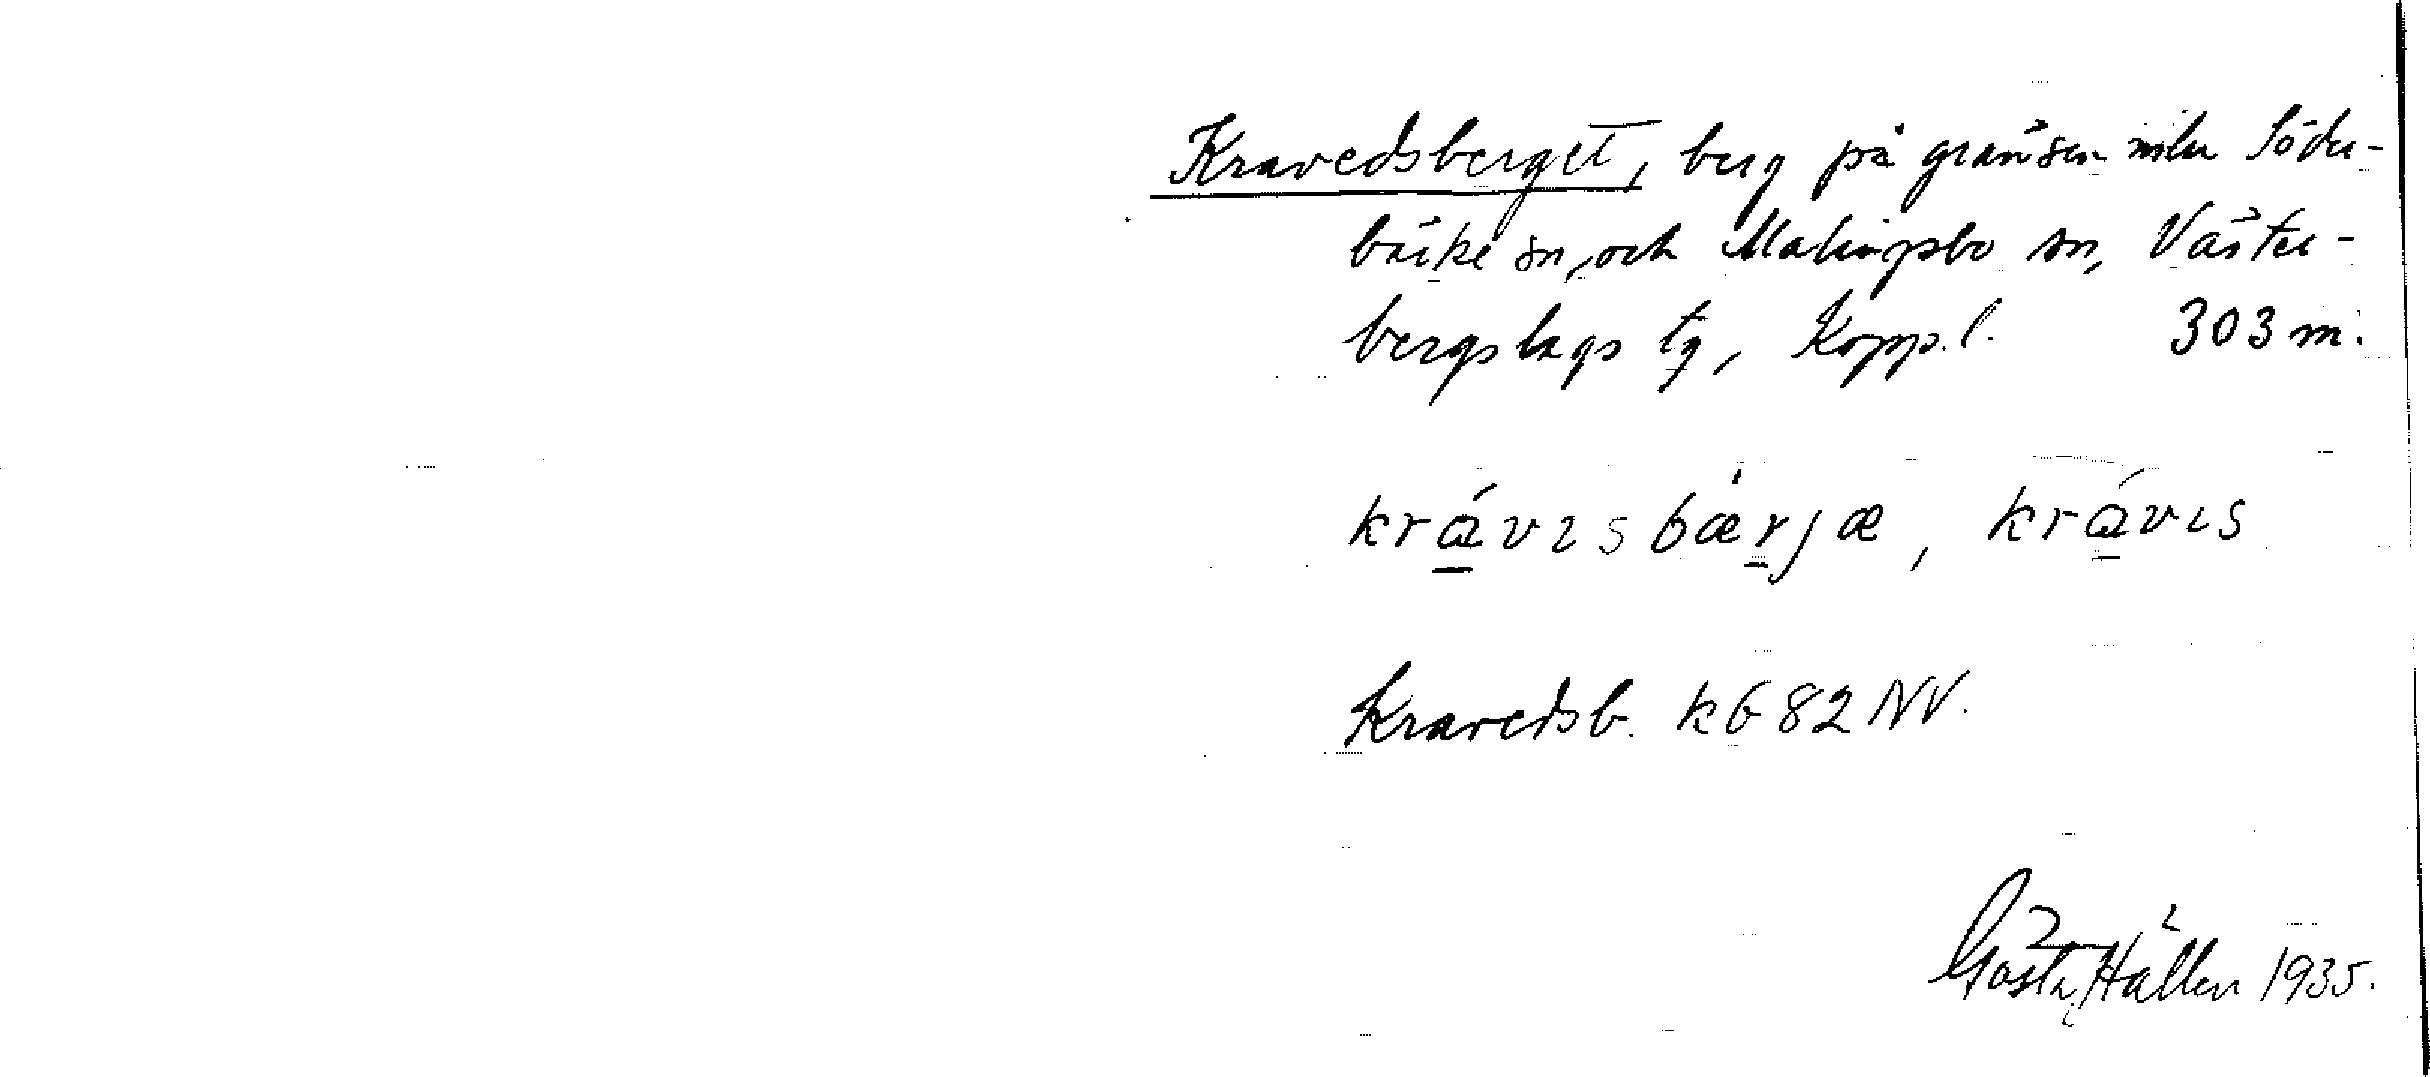 Kravedsberget, berg på gränsen mler Söder-
bärke sn, och Malingsbo sn, Väster-
bergslags tg, Kopp.l. 303 m.
krávɩsbærjæ, krávɩs
Kravedsb. kb 82 NV.
Gösta Hallen 1935.